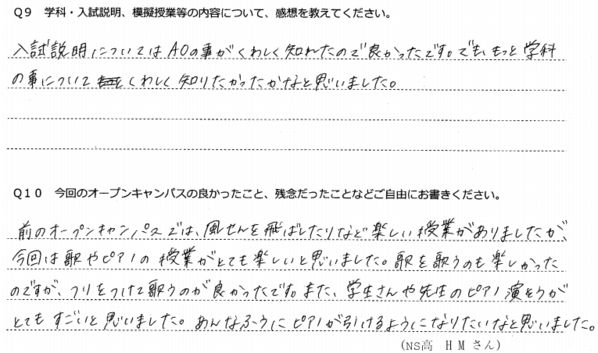 Q9 学科・入試説明、模擬授業等の内容について、感想を教えてください。
入試説明についてはAOの事がくわしく知れたので良かったです。でも、もっと学科
の事について くわしく知りたかったかなと思いました。
Q10 今回のオープンキャンパスの良かったこと、残念だったことなどご自由にお書きください。
前のオープンキャンパスでは、風せんを飛ばしたりなど楽しい授業がありましたが、
今回は歌やピアノの授業がとても楽しいと思いました。歌を歌うのも楽しかった
のですが、フリをつけて歌うのが良かったです。また、学生さんや先生のピアノ演そうが
とてもすごいと思いました。あんなふうにピアノが引けるようになりたいなと思いました。
(NS高 HMさん)